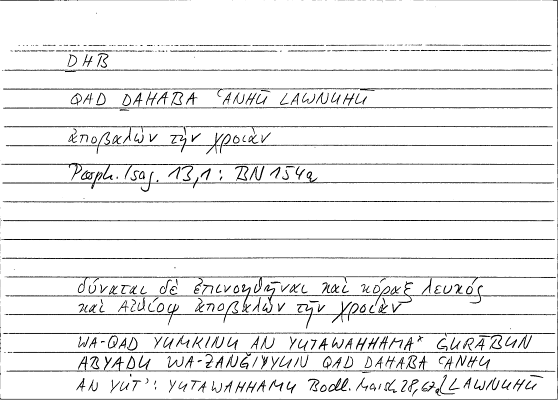 ḎHB
QAD ḎAHABA ʿANHŪ LAWNUHŪ
ἀποβαλὼν τὴν χροιὰν
Porph. Isag. 13,1 : BN 154a
δύναται δὲ ἐπινοηθῆναι καὶ κόραξ λευκός
καὶ Αἰθίοψ ἀποβαλὼν τὴν χροιάν
WA-QAD YUMKINU AN YUTAWAHHAMA* ĠURĀBUN
ABYAḌU WA-ZANǦIYYUN QAD ḎAHABA ʿANHU
AN YUT* : YUTAWAHHAMU Bodl. Marsh 28, [LAWNUHŪ